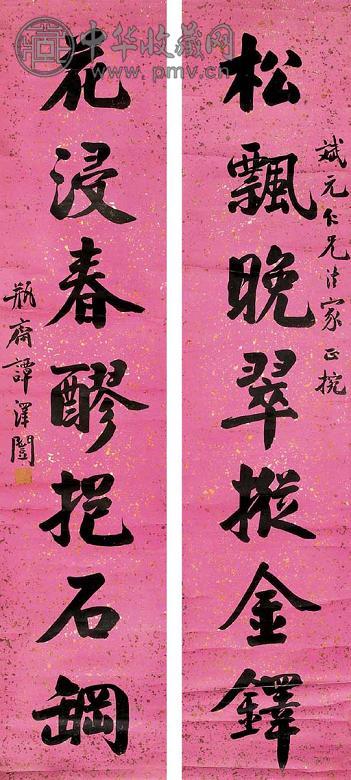 中华收藏网
www.pmv.cn
斌元仁兄法家正捥
松飄晚翠摐金鐸
花浸春醪挹石罁
瓶齋譚澤闓